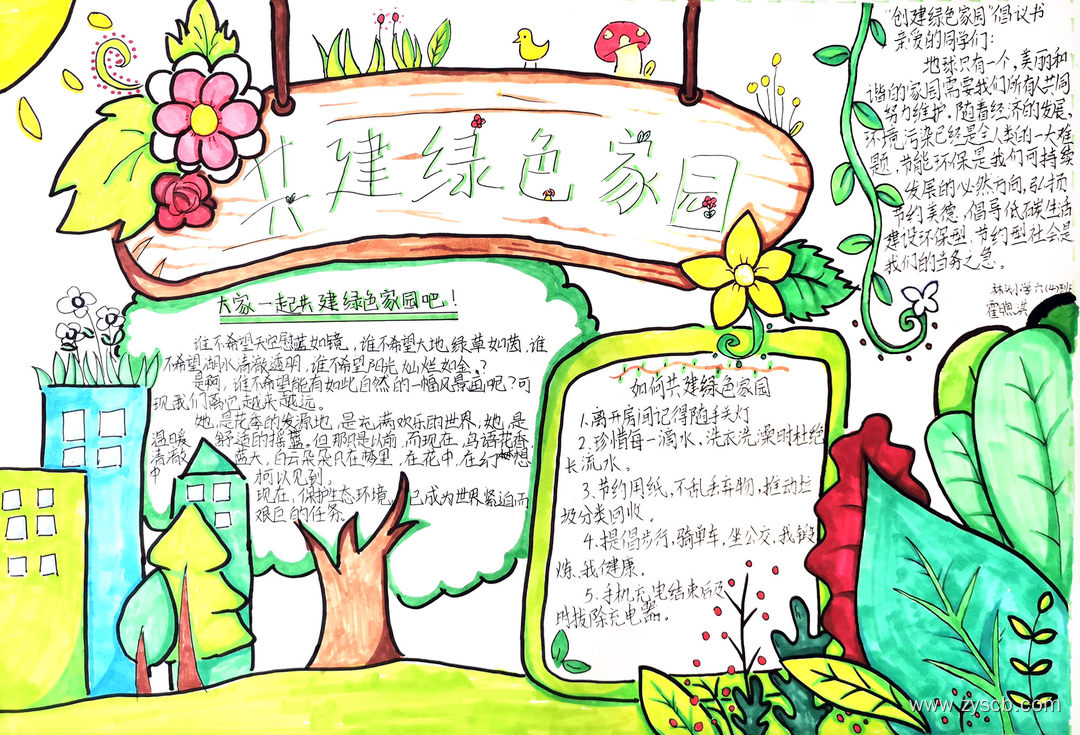 共建绿色家园
"创建绿色家园"倡议书
亲爱的同学们:
地球只有一个,美丽和
谐的家园需要我们所有人共同
努力维护。随着经济的发展,
环境污染已经是全人类的一大难
题,节能环保是我们可持续
发展的必然方向,弘扬
节约美德,倡导低碳生活
建设环保型、节约型社会是
我们的当务之急。
小学六(4)班
大家一起共建绿色家园吧!
谁不希望天空慰蓝如镜,谁不希望大地绿草如茵,谁
不希望湖水清澈透明,谁不希望阳光灿烂如金?
是啊,谁不希望能有如此自然的一幅风景画呢?可
现我们离它越来越远。
她,是花季的发源地,是充满欢乐的世界,她,是
温暖舒适的摇篮,但那只是以前,而现在,鸟语花香,
清澈蓝天,白云朵朵只在梦里,在花中,在幻想
中可以见到。
现在,保护生态环境,已成为世界紧迫而
艰巨的任务。
如何共建绿色家园
1.离开房间记得随手关灯
2.珍惜每一滴水,洗衣洗澡时杜绝
长流水。
3.节约用纸,不乱丢弃物,推动垃
圾分类回收。
4.提倡步行,骑单车,坐公交,我锻
炼,我健康。
5.手机充电结束后及
时拔除充电器。
www.zyscb.com